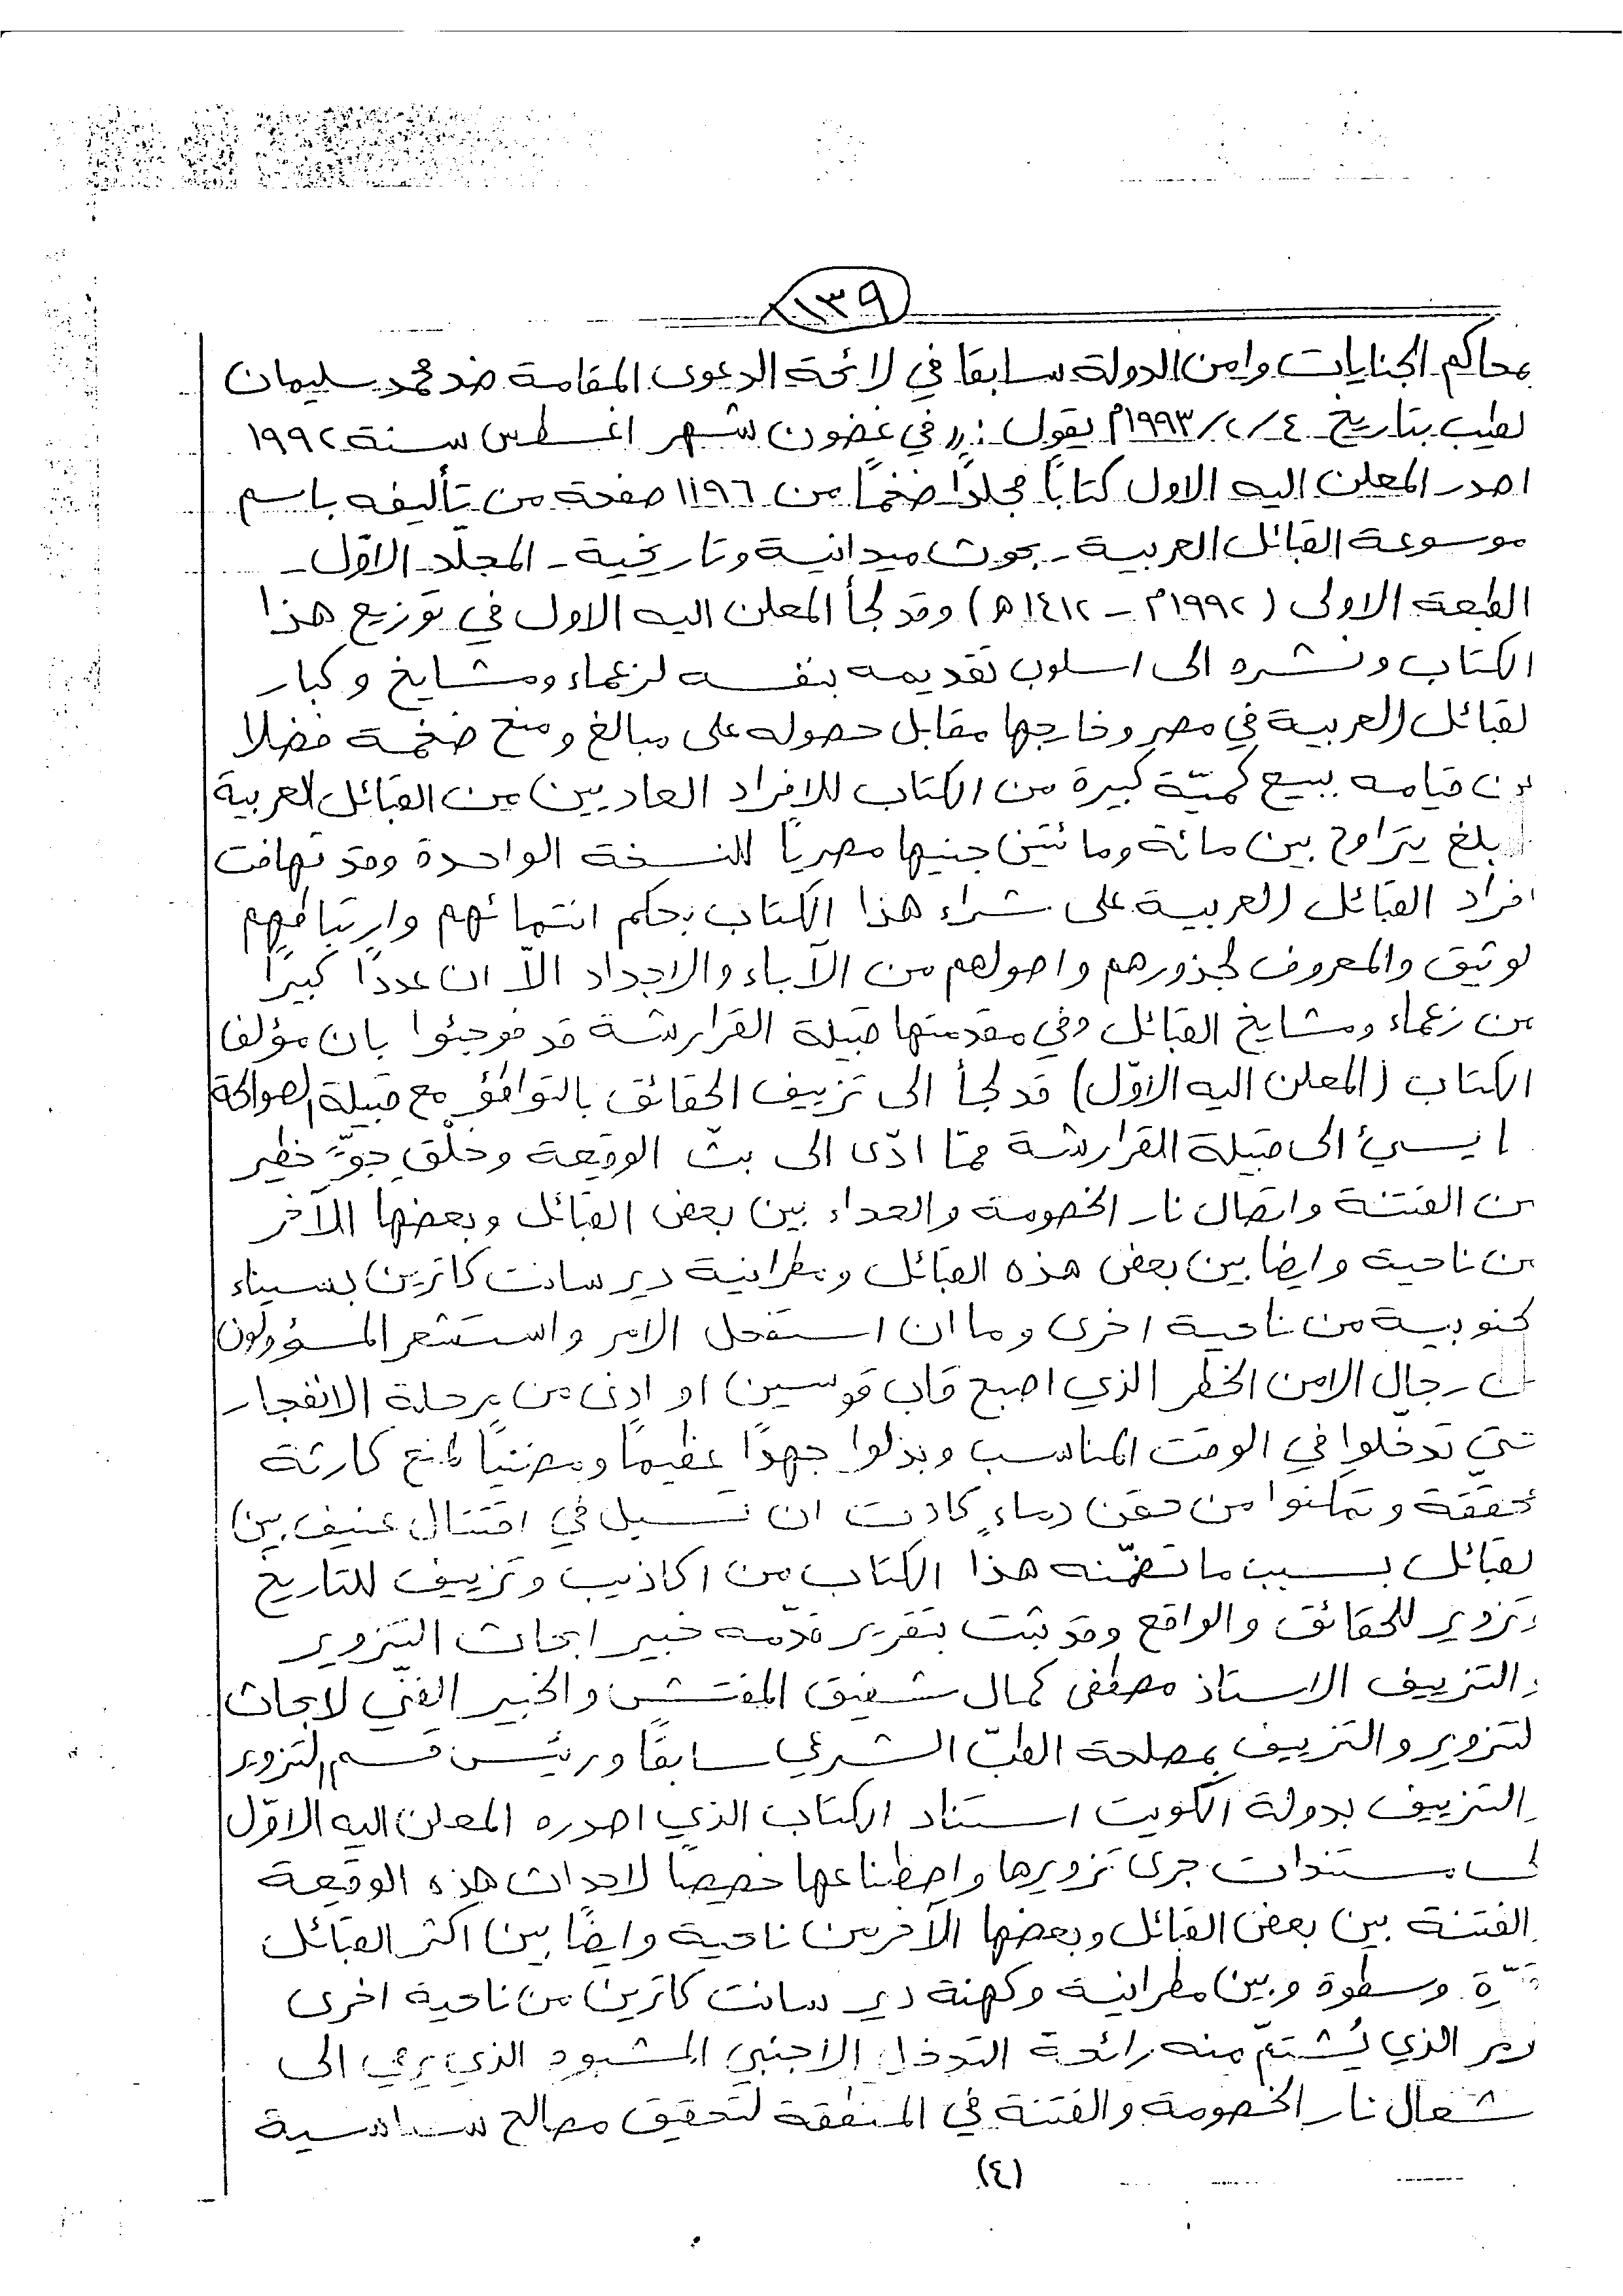 ١٣٩
بمحاكم الجنايات وامن الدولة سابقا في لائحة الدعوى المقامة ضد محمد سليمان
لطيب بتاريخ ٤/٢/١٩٩٣م يقول: «في غضون شهر اغسطس سنة ١٩٩٢
اصدر المعلن اليه الاول كتاباً مجلداً ضخماً من ١١٩٦ صفحة من تأليفه باسم
موسوعة القبائل العربية - بحوث ميدانية وتاريخية - المجلّد الاوّل -
الطبعة الاولى (١٩٩٢م - ١٤١٢هـ) وقد لجأ المعلن اليه الاول في توزيع هذا
الكتاب ونشره الى اسلوب تقديمه بنفسه لزعماء ومشايخ وكبار
لقبائل العربية في مصر وخارجها مقابل حصوله على مبالغ ومنح ضخمة فضلا
ن قيامه ببيع كميّة كبيرة من الكتاب للافراد العاديين من القبائل العربية
بلغ يتراوح بين مائة ومائتين جنيها مصرياً للنسخة الواحدة وقد تهافت
افراد القبائل العربية على شراء هذا الكتاب بحكم انتمائهم وارتباطهم
لوثيق والمعروف لجذورهم واصولهم من الآباء والاجداد الاّ ان عدداً كبيراً
من زعماء ومشايخ القبائل وفي مقدمتها قبيلة القرارشة قد فوجئوا بان مؤلف
الكتاب (المعلن اليه الاوّل) قد لجأ الى تزييف الحقائق بالتواطؤ مع قبيلة الصوالحة
ا يسيئ الى قبيلة القرارشة ممّا ادّى الى بثّ الوقيعة وخلْق جوٍّ خطير
ن الفتنة واتصال نار الخصومة والعداء بين بعض القبائل وبعضها الآخر
ن ناحية وايضا بين بعض هذه القبائل ومطرانية دير سانت كاترين بسيناء
لجنوبية من ناحية اخرى وما ان استفحل الامر واستشعر المسؤولون
ن رجال الامن الخطر الذي اصبح قاب قوسين او ادنى من مرحلة الانفجار
تى تدخّلوا في الوقت المناسب وبذلوا جهداً عظيماً ومضنياً لمنع كارثة
محقّقة وتمكنوا من حقن دماءٍ كادت ان تسيل في اقتتال عنيف بين
لقبائل بسبب ما تضمّنه هذا الكتاب من اكاذيب وتزييف للتاريخ
وتزوير للحقائق والواقع وقد ثبت بتقرير قدّمه خبير ابحاث التزوير
والتزييف الاستاذ مصطفى كمال شفيق المفتش والخبير الفنّي لابحاث
لتزوير والتزييف بمصلحة الطبّ الشرعي سابقاً ورئيس قسم التزوير
والتزييف بدولة الكويت استناد الكتاب الذي اصدره المعلن اليه الاوّل
لى مستندات جرى تزويرها واصطناعها خصيصاً لاحداث هذه الوقيعة
الفتنة بين بعض القبائل وبعضها الآخر من ناحية وايضاً بين اكثر القبائل
قوّة وسطوة وبين مطرانية وكهنة دير سانت كاترين من ناحية اخرى
مر الذي يُشتمّ منه رائحة التدخل الاجنبي المشبوه الذي يرمي الى
شعال نار الخصومة والفتنة في المنطقة لتحقيق مصالح سياسية
(٤)